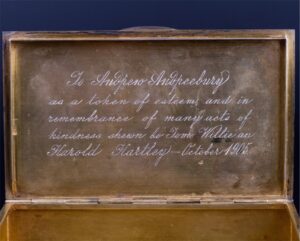 To Andrew Andrecbury
as a token of esteem and in
remembrance of many acts of
kindness shewn by Tom Willie an
Harold Hartley — October 1905